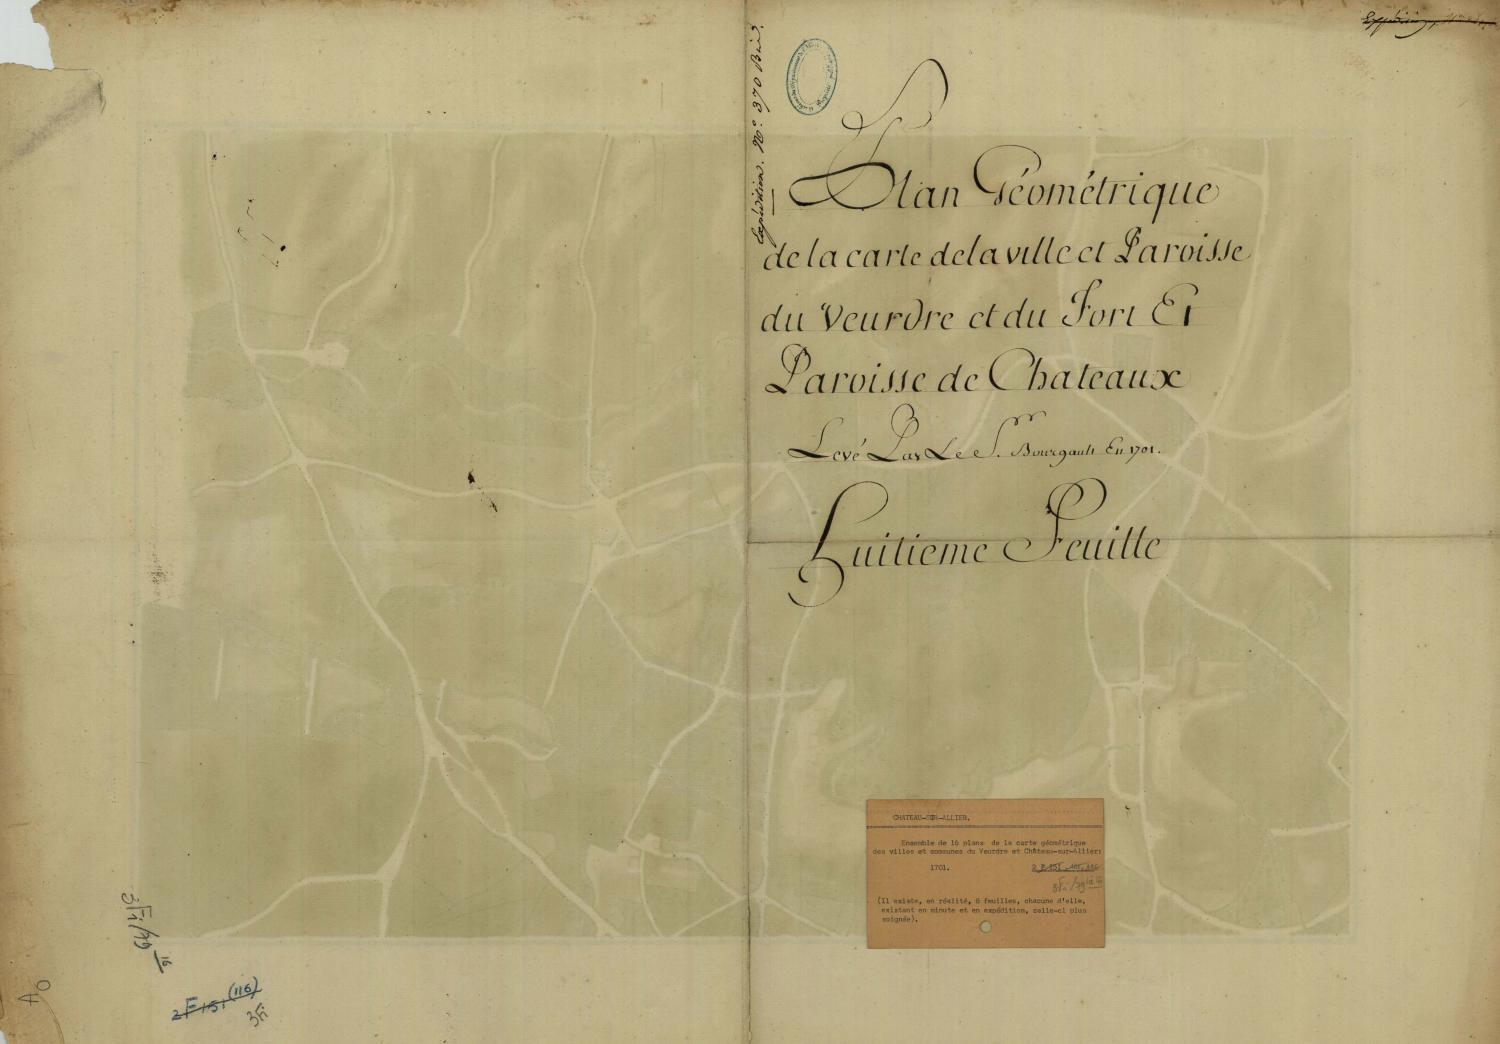 Expédition. N.º 370 Bis.
Plan Géométrique
de la carte de la ville et Paroisse
du Veurdre et du Fort Et
Paroisse de Chateaux
Levé Par Le S.r Bourgault En 1701.
Huitieme Feuille
CHATEAU-SUR-ALLIER.
Ensemble de 16 plans de la carte géométrique
des villes et communes du Veurdre et Château-sur-Allier:
1701.
3Fi/79
(Il existe, en réalité, 8 feuilles, chacune d'elle,
existant en minute et en expédition, celle-ci plus
soignée).
3Fi/79 16
2 F 151 (116)
3Fi